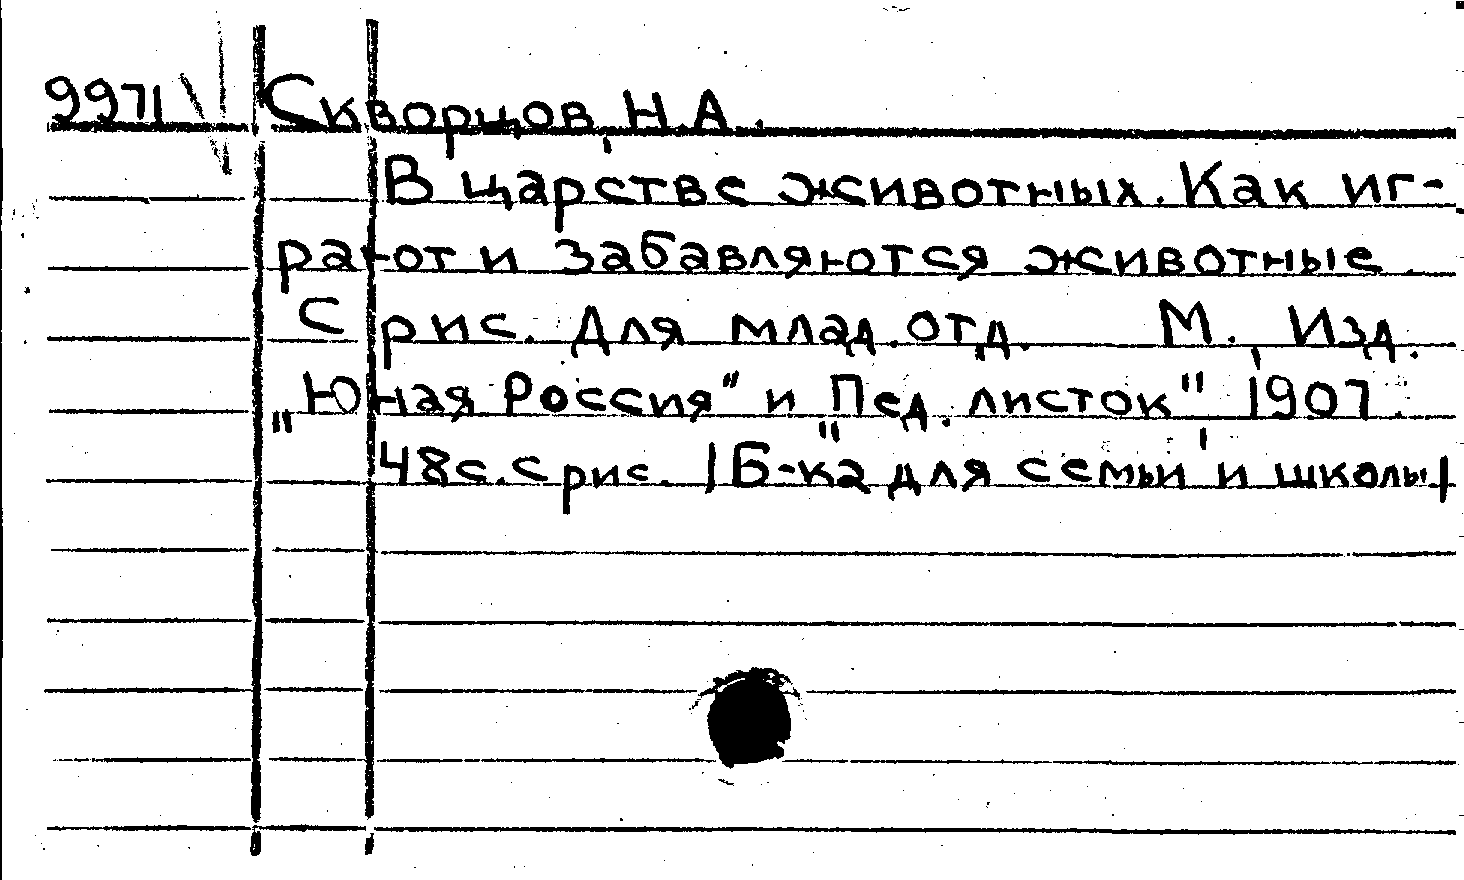 9971 Скворцов, Н.А.
В царстве животных. Как иг-
рают и забавляются животные.
С рис. Для млад. отд. М., Изд.
„Юная Россия" и „Пед. листок", 1907.
48с. с рис. /Б-ка для семьи и школы/